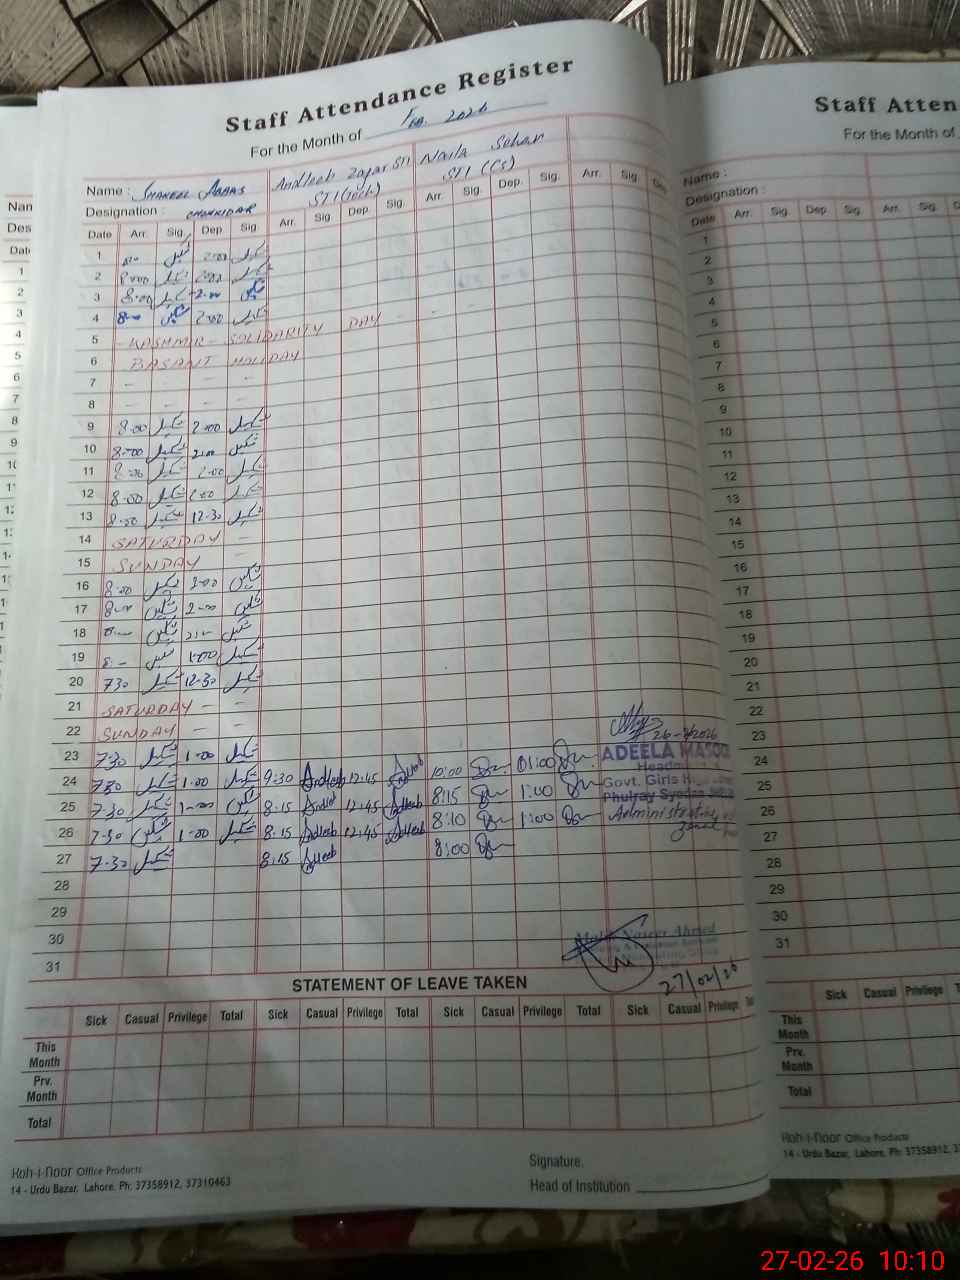 Staff Attendance Register
For the Month of Feb. 2026
Name : SHAKEEL ABBAS Andleeb Zafar STI Naila Sehar
Designation : CHOKIDAR STI (Tech) STI (Cs)
Date Arr. Sig. Dep. Sig. Arr. Sig. Dep. Sig. Arr. Sig. Dep. Sig. Arr. Sig.
1 شکیل 2:00 شکیل
2 8:00 شکیل 2:00 شکیل
3 8:00 شکیل 2:00 شکیل
4 8:00 شکیل 2:00 شکیل
5 - KASHMIR - SOLIDARITY DAY - -
6 BASANT HOLIDAY
7 - - - -
8 - - - -
9 8:00 شکیل 2:00 شکیل
10 8:00 شکیل 2:00 شکیل
11 8:00 شکیل 2:00 شکیل
12 8:00 شکیل 2:00 شکیل
13 8:00 شکیل 12-30 شکیل
14 SATURDAY -
15 SUNDAY -
16 8:00 شکیل شکیل
17 8:00 شکیل 2:00 شکیل
18 شکیل شکیل
19 شکیل 1:00 شکیل
20 7:30 شکیل 12-30 شکیل
21 SATURDAY - -
22 SUNDAY -
23 7-30 شکیل 1-00 شکیل
24 7:30 شکیل 1:00 شکیل 9:30 Andleeb 12:45 Andleeb 10:00 01:00
25 7-30 شکیل 1-00 شکیل 8:15 Andleeb 12:45 Andleeb 8:15 1:00
26 7-30 شکیل 1:00 شکیل 8:15 Andleeb 12:45 Andleeb 8:10 1:00
27 7-30 شکیل 8:15 Andleeb 8:00
28
29
30
31
26-2-2026
ADEELA MASOOD
Headmistress
Govt. Girls H
Phulray Syedan
Administrative
Naseer Ahmed
27/02/26
STATEMENT OF LEAVE TAKEN
Sick Casual Privilege Total Sick Casual Privilege Total Sick Casual Privilege Total Sick Casual Privilege
This Month
Prv. Month
Total
Signature.
Head of Institution
Koh-i-Noor Office Products
14 - Urdu Bazar, Lahore. Ph: 37358912, 37310463
Staff Atten
For the Month of
Name :
Designation :
Date Arr. Sig. Dep. Sig. Arr. Sig.
1
2
3
4
5
6
7
8
9
10
11
12
13
14
15
16
17
18
19
20
21
22
23
24
25
26
27
28
29
30
31
Sick Casual Privilege
This Month
Prv. Month
Total
Koh-i-Noor Office Products
14 - Urdu Bazar, Lahore. Ph: 37358912,
27-02-26 10:10